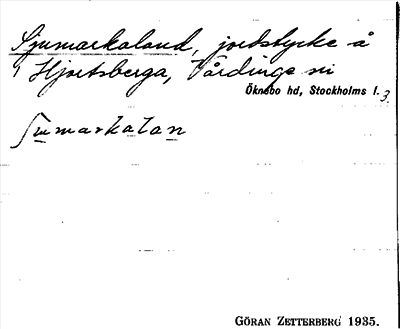 Sjumarkaland, jordstycke å
1 Hjortsberga, Vårdinge sn
Öknebo hd, Stockholms l. 3.
ʃumarkalan
GÖRAN ZETTERBERG 1935.